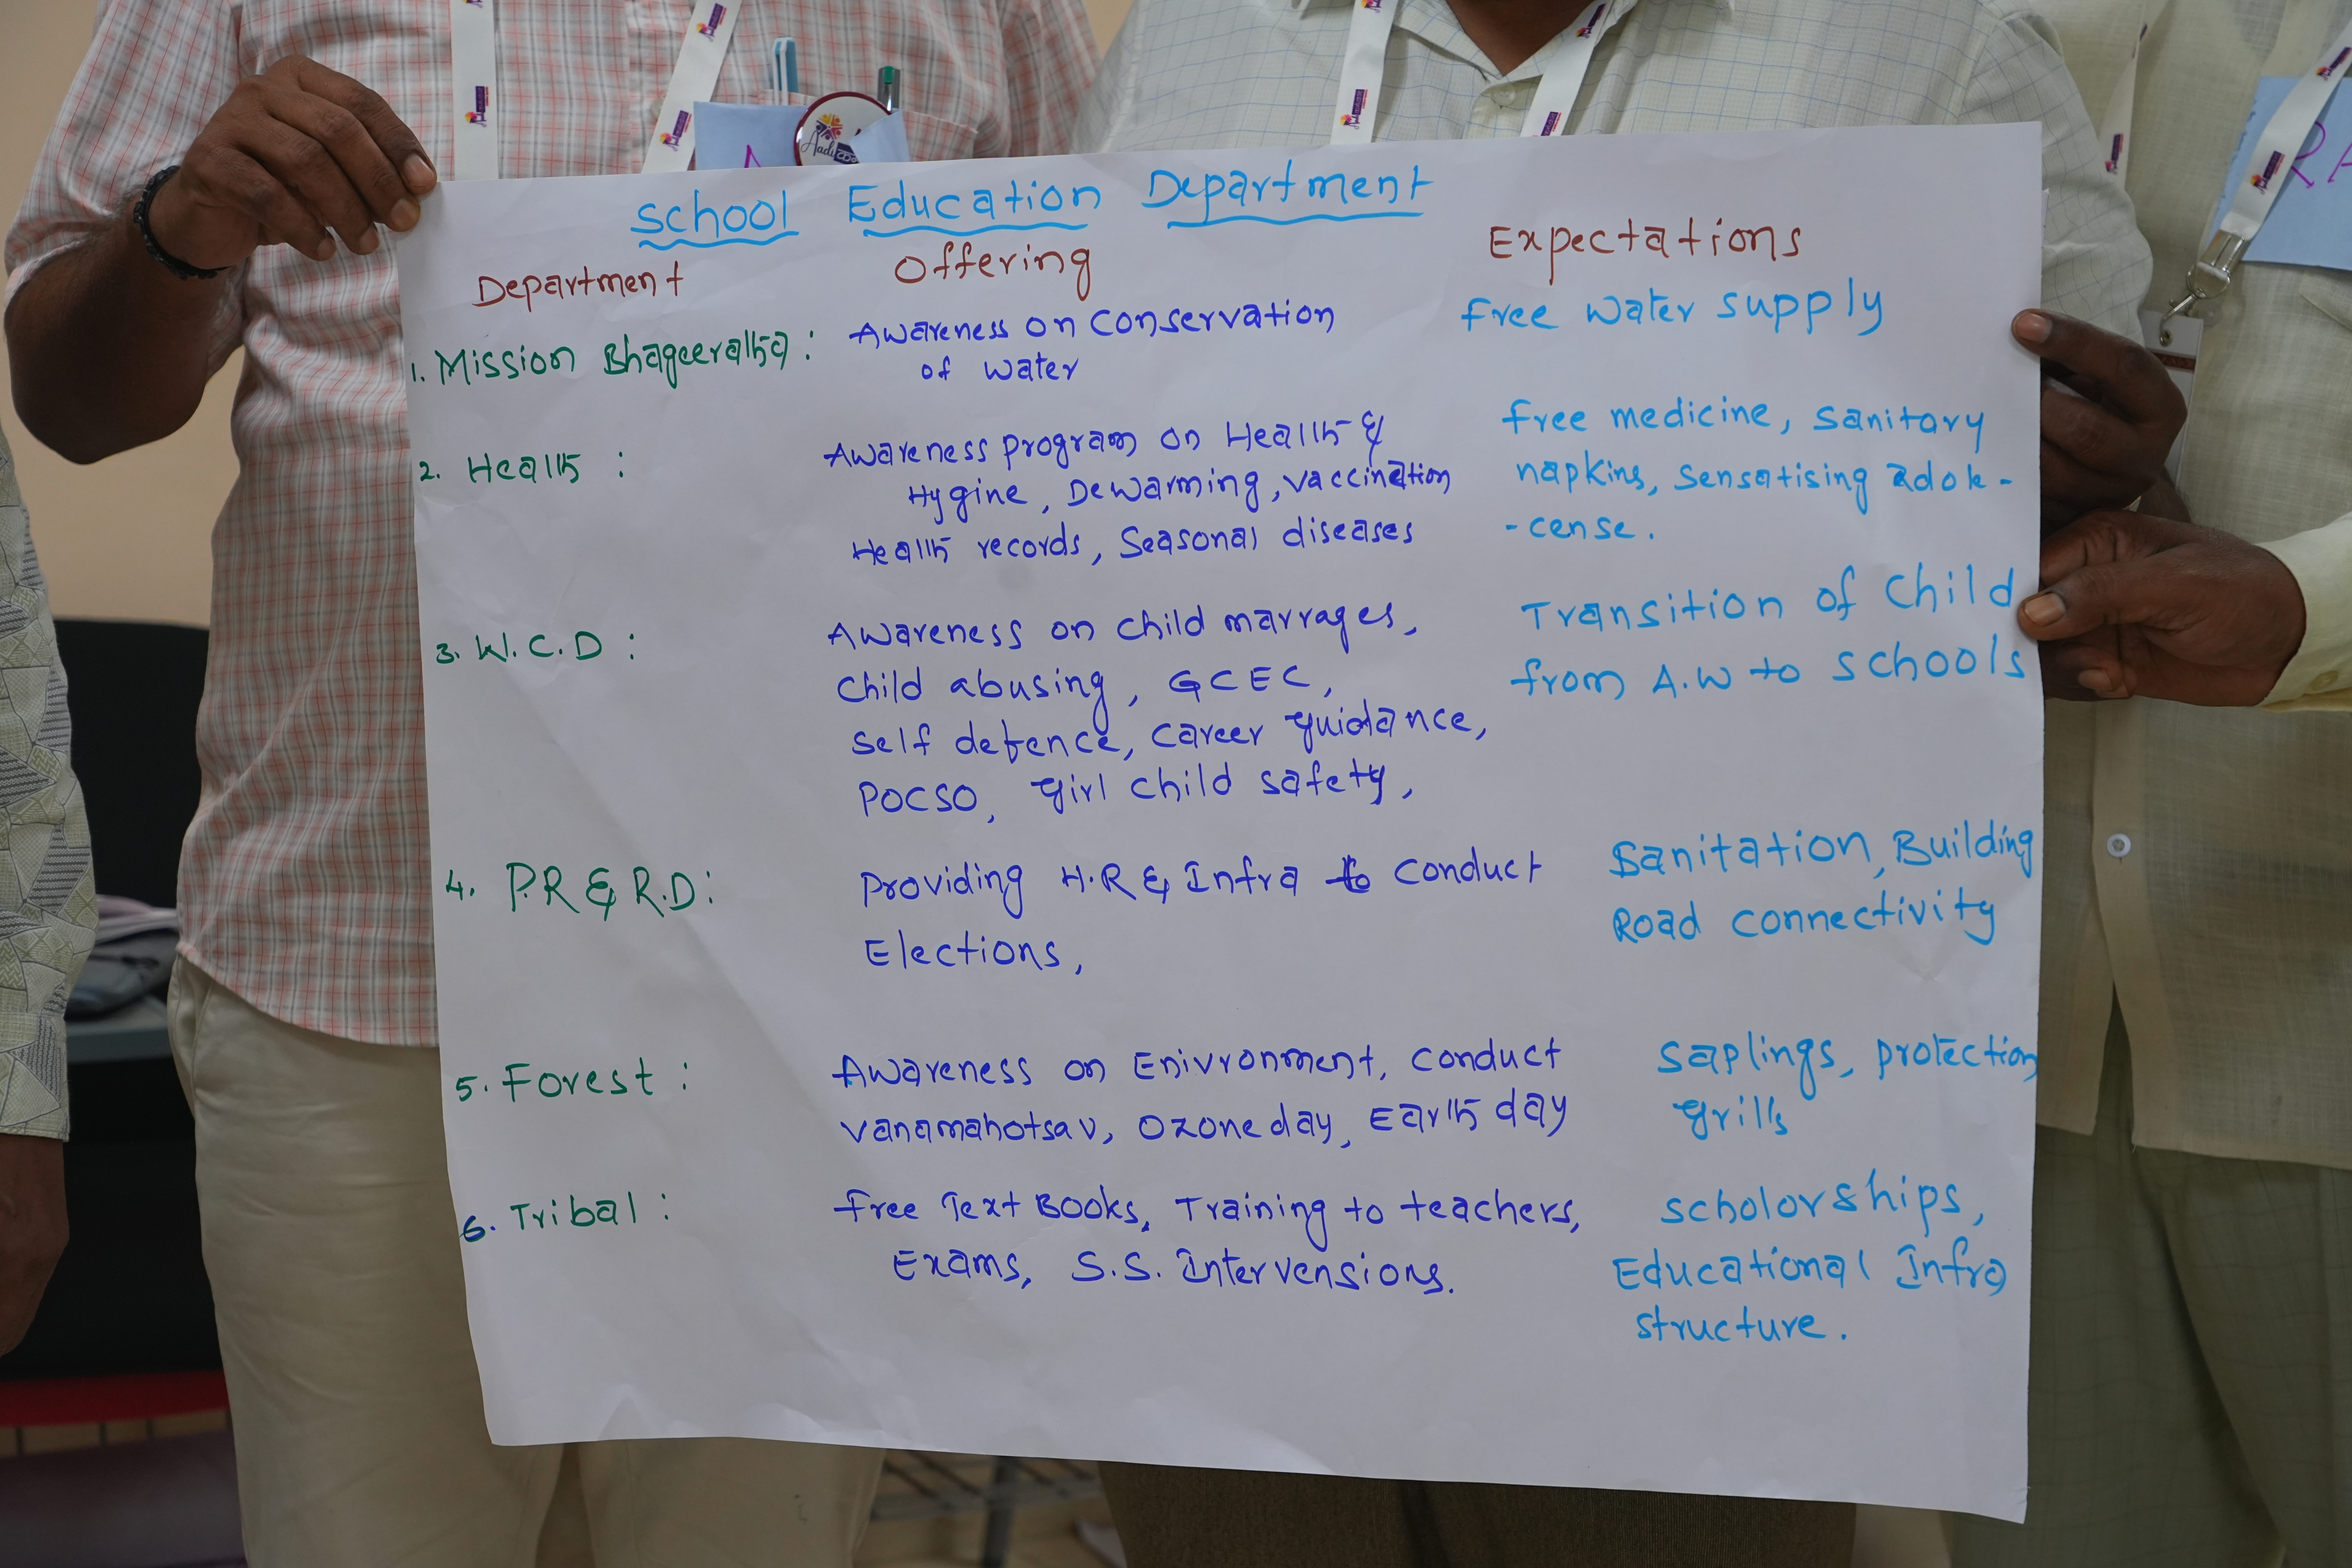 School Education Department
Department Offering Expectations
1. Mission Bhageeratha : Awareness on Conservation Free Water supply
of Water
2. Health : Awareness program on Health & Free medicine, Sanitary
Hygine, Dewarming, Vaccination napkins, Sensatising adole-
Health records, Seasonal diseases -cense.
3. W.C.D : Awareness on child marrages, Transition of Child
Child abusing, GCEC, from A.W to Schools
Self defence, Career guidance,
POCSO, Girl child safety,
4. P.R & R.D : Providing H.R & Infra to Conduct Sanitation, Building
Elections, Road connectivity
5. Forest : Awareness on Enivronment, Conduct Saplings, protection
Vanamahotsav, Ozone day, Earth day grills
6. Tribal : Free Text Books, Training to teachers, Scholorships,
Exams, S.S. Intervensions. Educational Infra
structure.
Aadi
RA